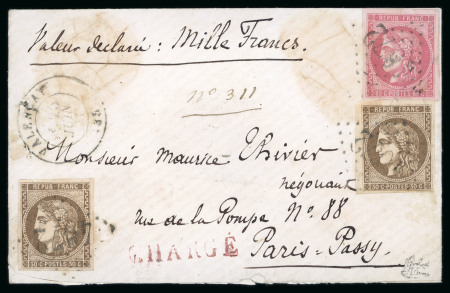 Valeur déclarée : Mille Francs.
REPUB. FRANC.
80 C. POSTES 80 C.
No 311
REPUB. FRANC.
30 C. POSTES 30 C.
Monsieur Maurice Thivier
négociant
rue de la Pompe No. 88
CHARGÉ
Paris-Passy.
REPUB. FRANC.
30 C. POSTES 30 C.